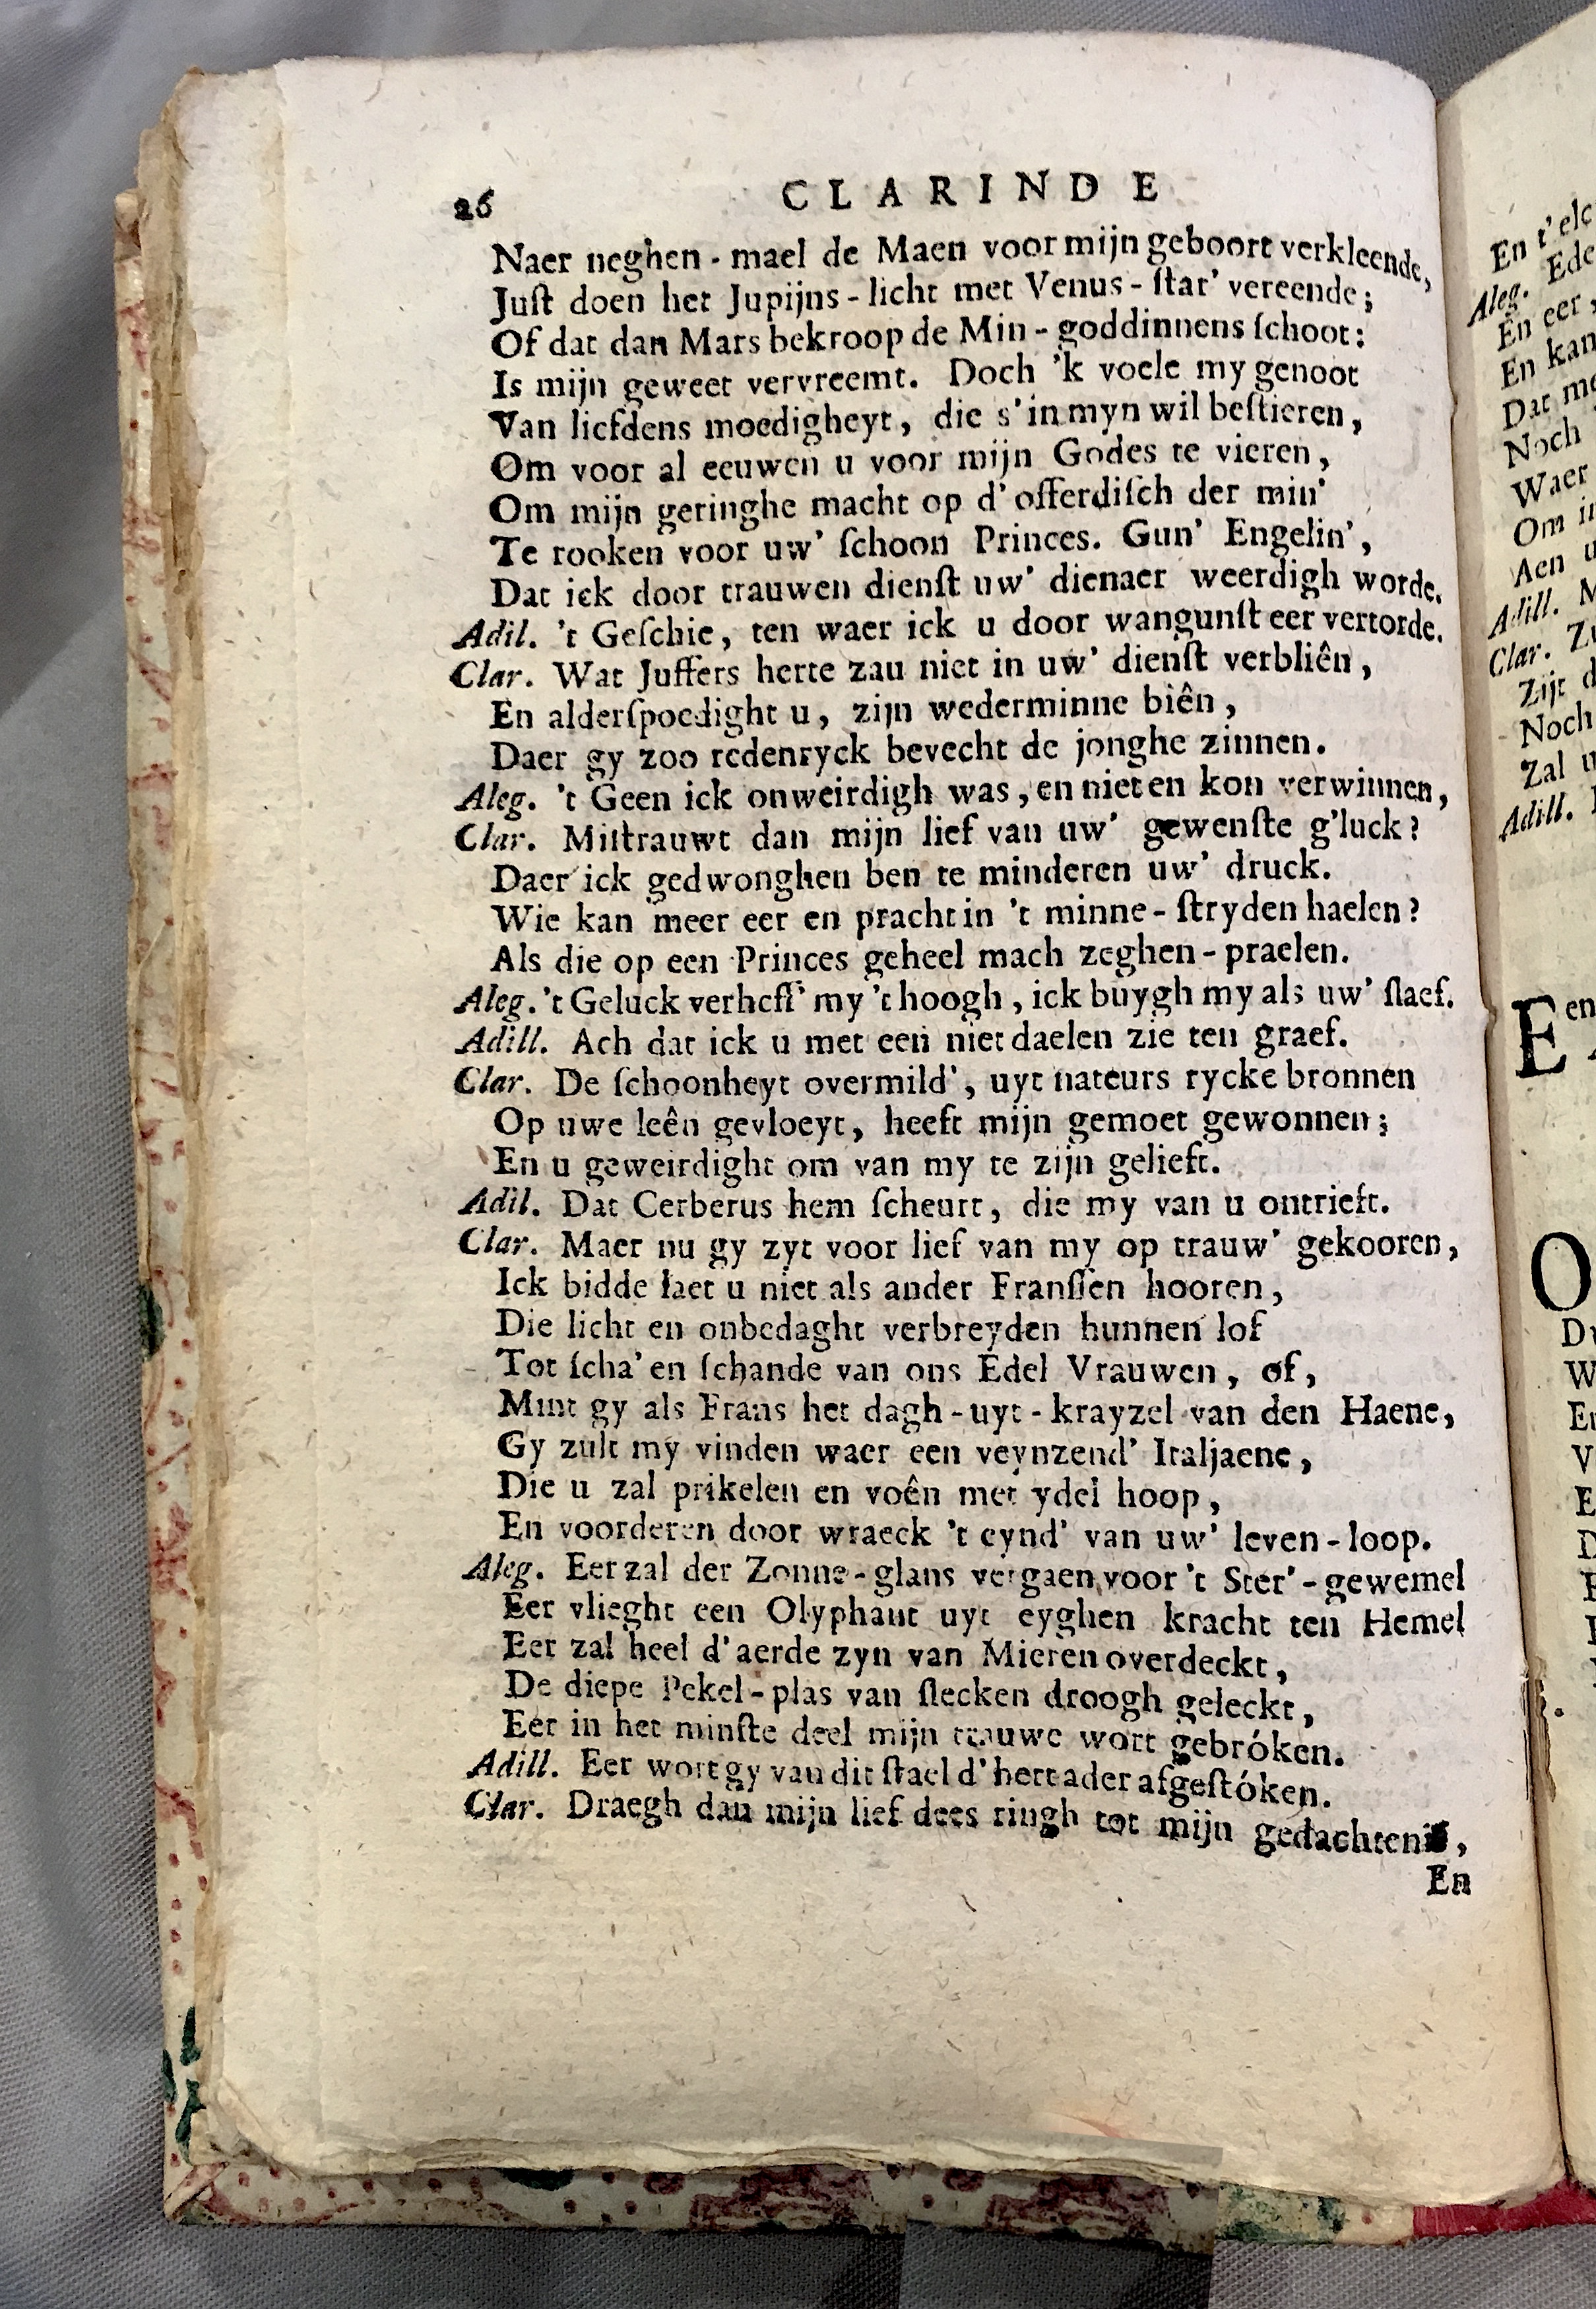 26 CLARINDE
Naer neghen-mael de Maen voor mijn geboort verkleende,
Juſt doen het Jupijns-licht met Venus-ſtar' vereende;
Of dat dan Mars bekroop de Min-goddinnens ſchoot:
Is mijn geweet vervreemt. Doch 'k voele my genoot
Van liefdens moedigheyt, die s'in myn wil beſtieren,
Om voor al eeuwen u voor mijn Godes te vieren,
Om mijn geringhe macht op d'offerdiſch der min'
Te rooken voor uw' ſchoon Princes. Gun' Engelin',
Dat ick door trauwen dienſt uw' dienaer weerdigh worde.
Adil. 't Geſchie, ten waer ick u door wangunſt eer vertorde.
Clar. Wat Juffers herte zau niet in uw' dienſt verbliên,
En alderſpoedight u, zijn wederminne biên,
Daer gy zoo redenryck bevecht de jonghe zinnen.
Aleg. 't Geen ick onweirdigh was, en niet en kon verwinnen,
Clar. Miſtrauwt dan mijn lief van uw' gewenſte g'luck?
Daer ick gedwonghen ben te minderen uw' druck.
Wie kan meer eer en pracht in 't minne-ſtryden haelen?
Als die op een Princes geheel mach zeghen-praelen.
Aleg. 't Geluck verheff' my 't hoogh, ick buygh my als uw' ſlaef.
Adill. Ach dat ick u met een niet daelen zie ten graef.
Clar. De ſchoonheyt overmild', uyt nateurs rycke bronnen
Op uwe leên gevloeyt, heeft mijn gemoet gewonnen;
En u geweirdight om van my te zijn gelieft.
Adil. Dat Cerberus hem ſcheurt, die my van u ontrieft.
Clar. Maer nu gy zyt voor lief van my op trauw' gekooren,
Ick bidde laet u niet als ander Franſſen hooren,
Die licht en onbedaght verbreyden hunnen lof
Tot ſcha' en ſchande van ons Edel Vrauwen, of,
Mint gy als Frans het dagh-uyt-krayzel van den Haene,
Gy zult my vinden waer een veynzend' Italjaene,
Die u zal prikelen en voên met ydel hoop,
En voorderen door wraeck 't eynd' van uw' leven-loop.
Aleg. Eer zal der Zonne-glans vergaen voor 't Ster'-gewemel
Eer vlieght een Olyphant uyt eyghen kracht ten Hemel
Eer zal heel d'aerde zyn van Mieren overdeckt,
De diepe Pekel-plas van ſlecken droogh geleckt,
Eer in het minſte deel mijn trauwe wort gebróken.
Adill. Eer wort gy van dit ſtael d'hertader afgeſtóken.
Clar. Draegh dan mijn lief dees ringh tot mijn gedachtenis,
En
En t'elc
Aleg. Ede
En eer,
En kan
Dat me
Noch
Waer
Om i
Aen u
Adill. M
Clar. Z
Zijt d
Noch
Zal u
Adill.
Een
O
D
W
E
V
E
D